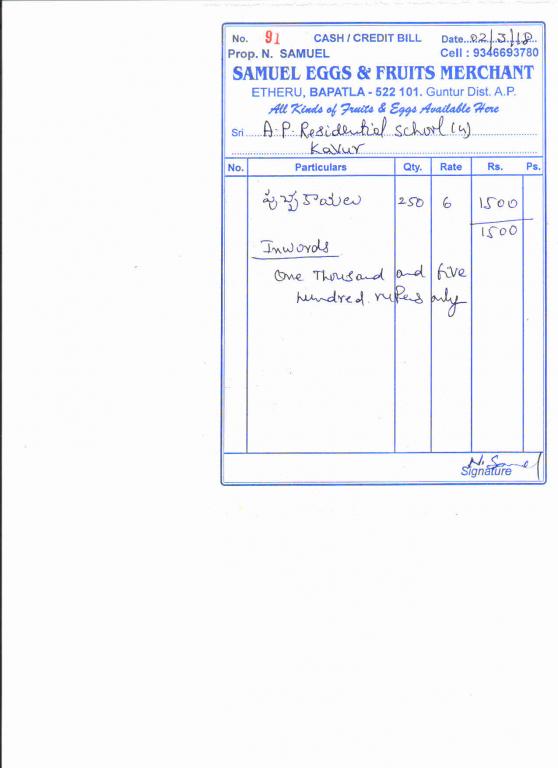 No. 91 CASH / CREDIT BILL Date 02/3/18
Prop. N. SAMUEL Cell : 9346693780
SAMUEL EGGS & FRUITS MERCHANT
ETHERU, BAPATLA - 522 101. Guntur Dist. A.P.
All Kinds of Fruits & Eggs Available Here
Sri A.P. Residential School (G)
Kavur
No. Particulars Qty. Rate Rs. Ps.
పుచ్చకాయలు 250 6 1500
1500
Inwords
One Thousand and five
hundred rupees only
N. Samuel
Signature